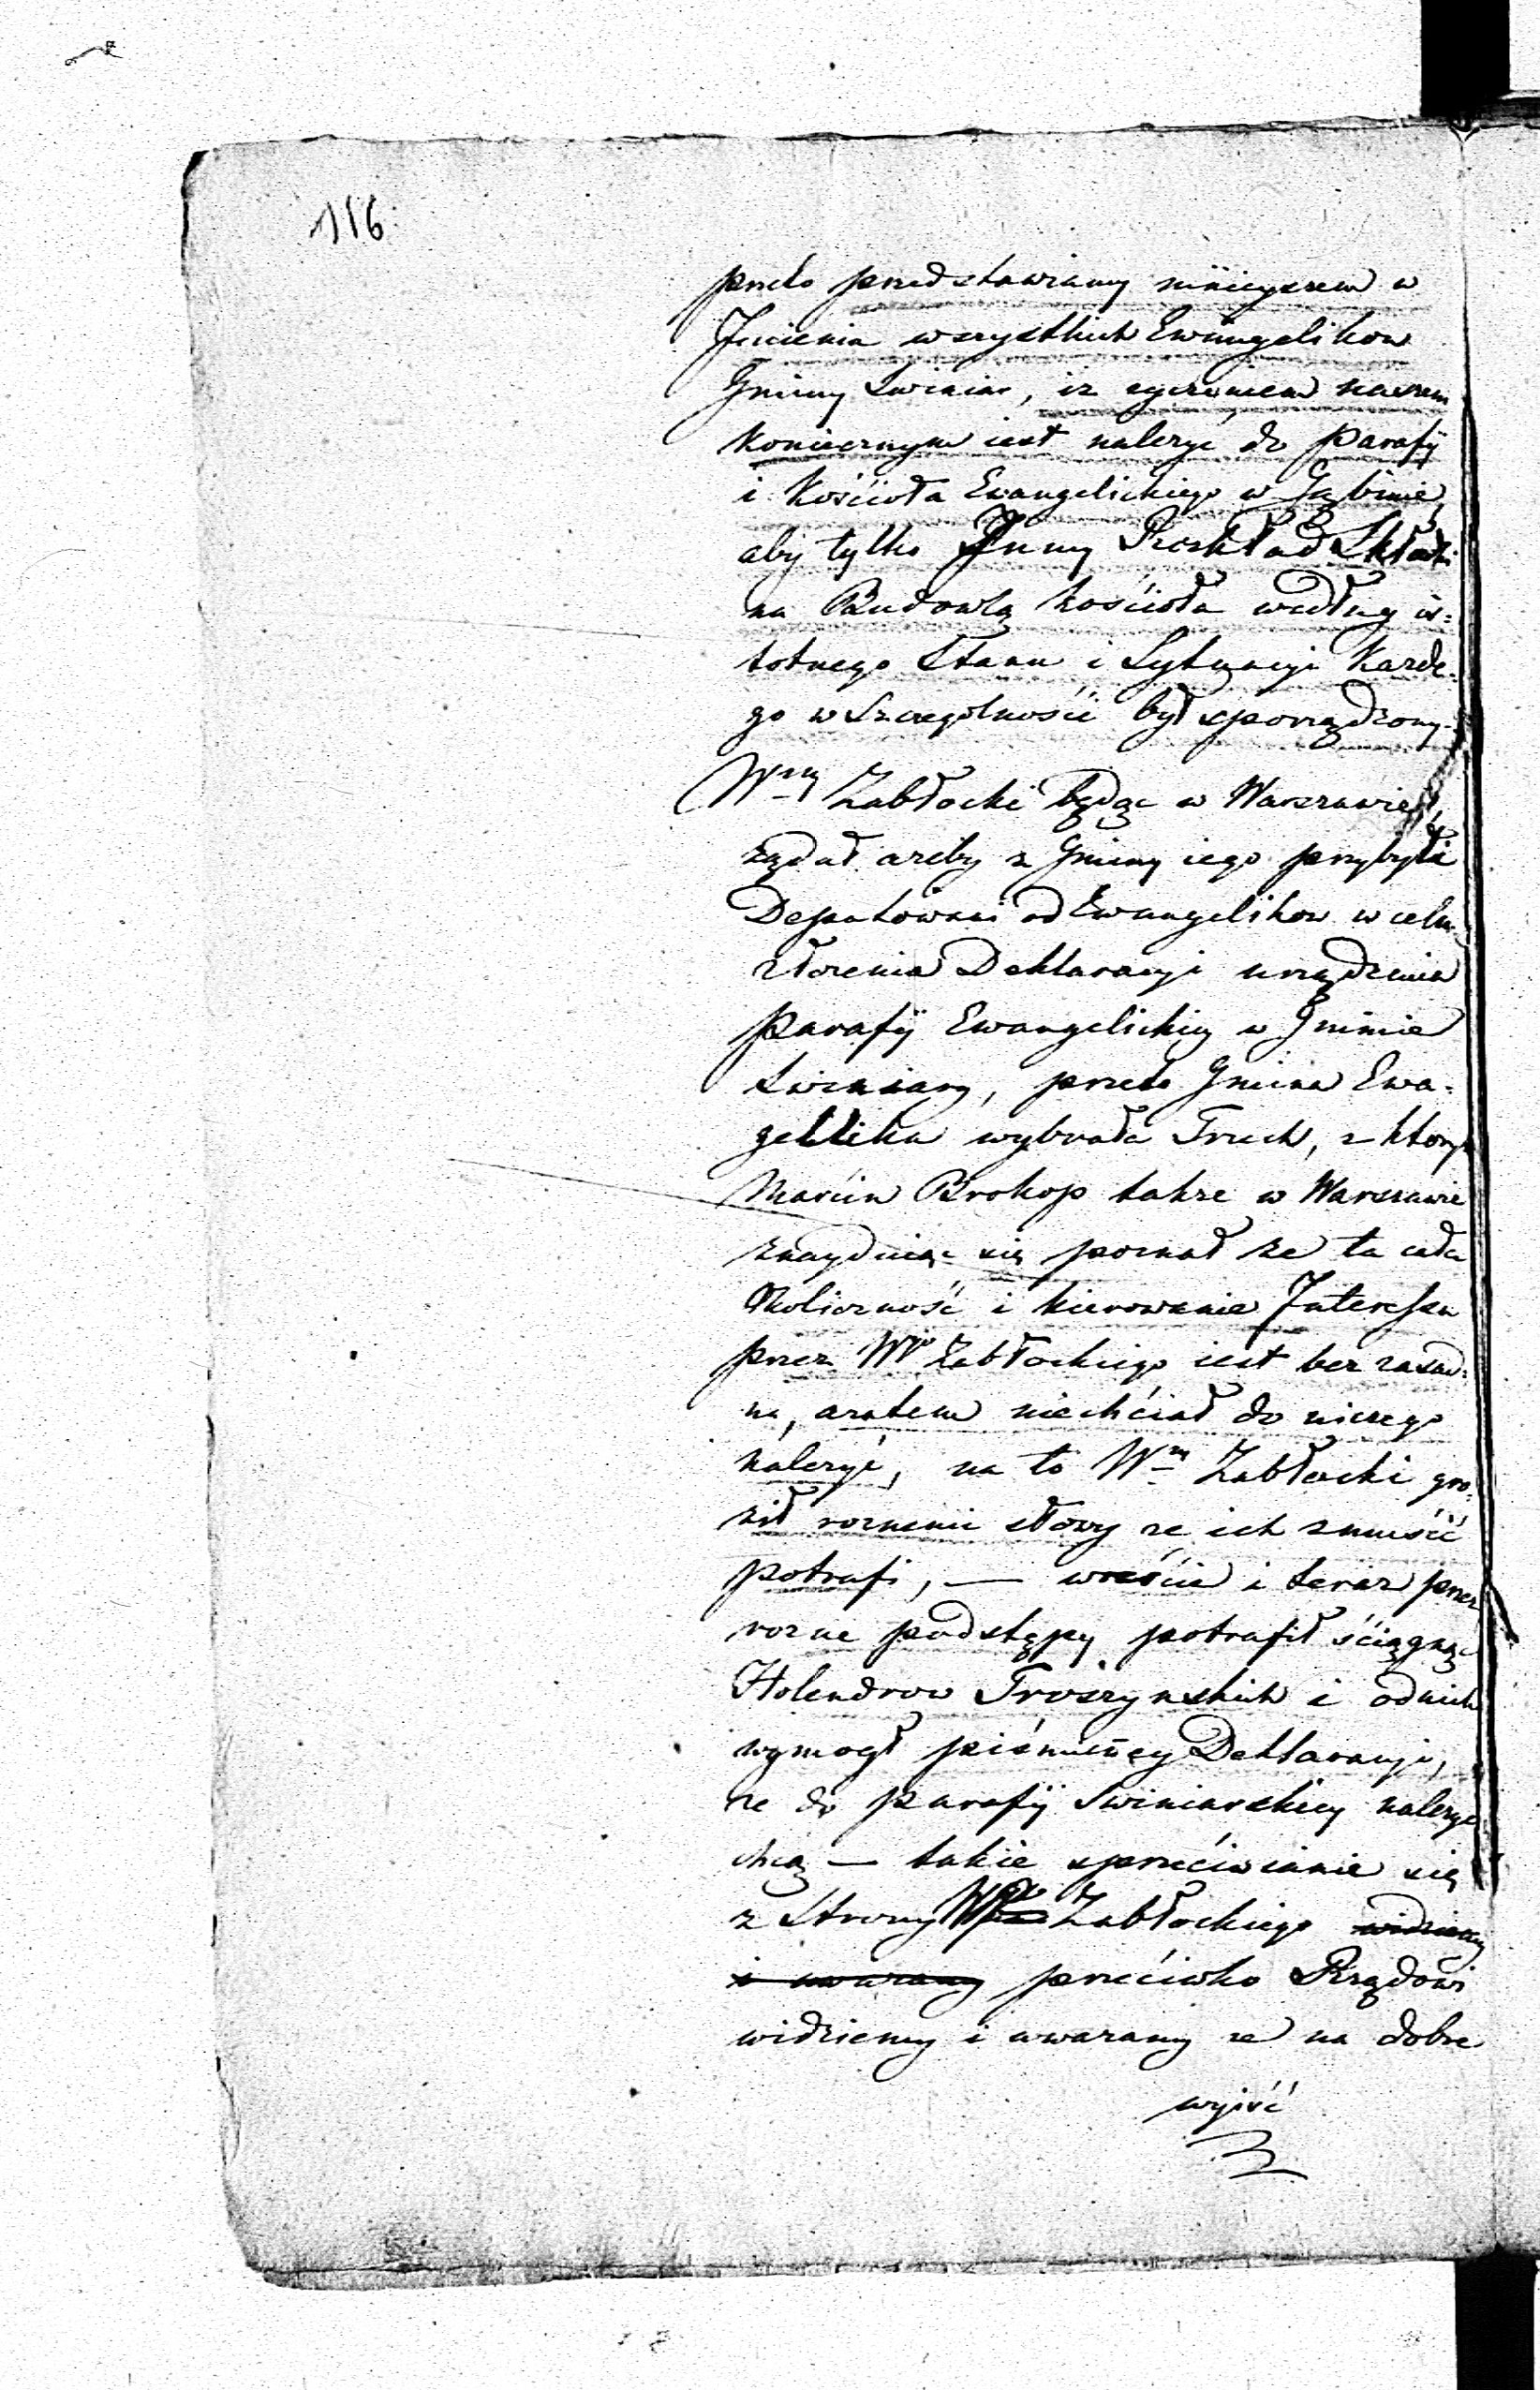 116.
przeto przedstawiamy ninieyszem w
Jmieniu wszystkich Ewangelikow
Gminy Swiniar, iz zyczeniem naszem
koniecznym iest nalezyć do Parafij
i Kościoła Ewangelickiego w Gąbinie,
aby tylko Jnny Rozkład Składki
na Budowlą kościoła według is:
totnego Stanu i Sytuacyi kazde:
go w Szczegolności był sporządzony.
Wny Zabłocki będąc w Warszawie,
ządał azeby z Gminy iego przybyli
Deputowani od Ewangelikow w celu
złozenia Deklaracyi urządzenia
Parafij Ewangelickiey w Gminie
Swiniary, przeto Gmina Ewa:
gelika wybrała Trzech, z ktorych
Marcin Prokop takze w Warszawie
znayduiąc się poznał ze ta cała
Okoliczność i kierowanie Jnteressu
przez Wgo Zabłockiego iest bez zasad:
na, azatem niechciał do niczego
nalezyć, na to Wny Zabłocki gro:
ził roznemi słowy ze ich zmusić
potrafi, — wreście i teraz przez
rozne podstępy potrafił ściągnąć
Holendrow Troszynskich i od nich
wymogł piśmienney Deklaracyi,
ze do parafij Swiniarskiey nalezyć
chcą — takie sprzeciwianie się
z Strony Wgo Zabłockiego widziemy
i uwazamy przeciwko Rządowi
widziemy i uwazamy ze na dobre
wyiść